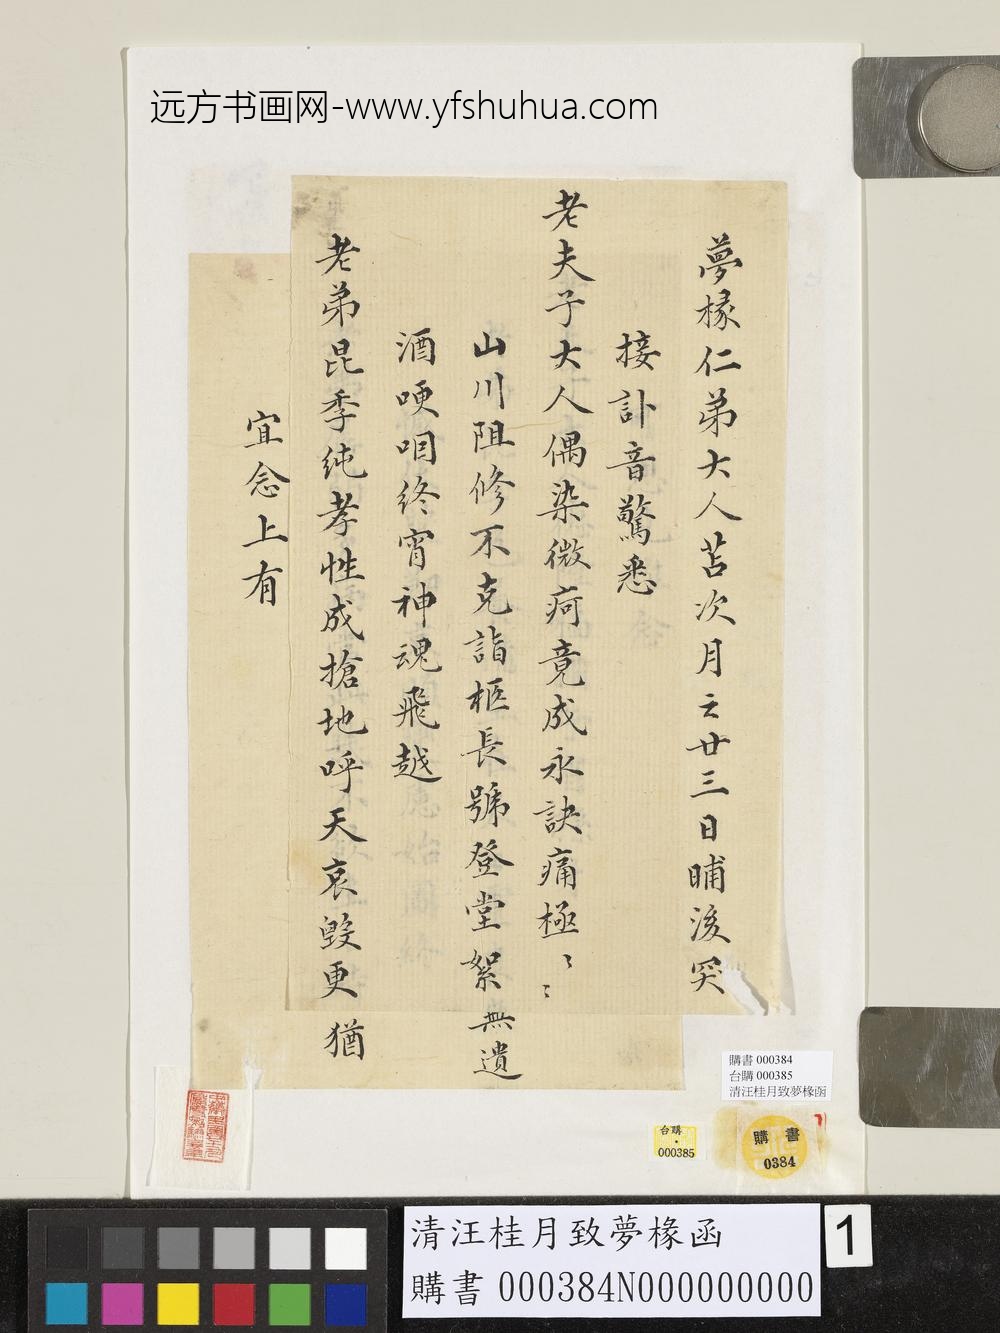 远方书画网-www.yfshuhua.com
夢椽仁弟大人苫次月之廿三日晡後哭
接訃音驚悉
老夫子大人偶染微疴竟成永訣痛極〻〻
山川阻修不克詣柩長號登堂絮無遺
酒哽咽終宵神魂飛越
老弟昆季純孝性成搶地呼天哀毀更猶
宜念上有
購書 000384
台購 000385
清汪桂月致夢椽函
台購
000385
購書
0384
清汪桂月致夢椽函
購書 000384N000000000
1